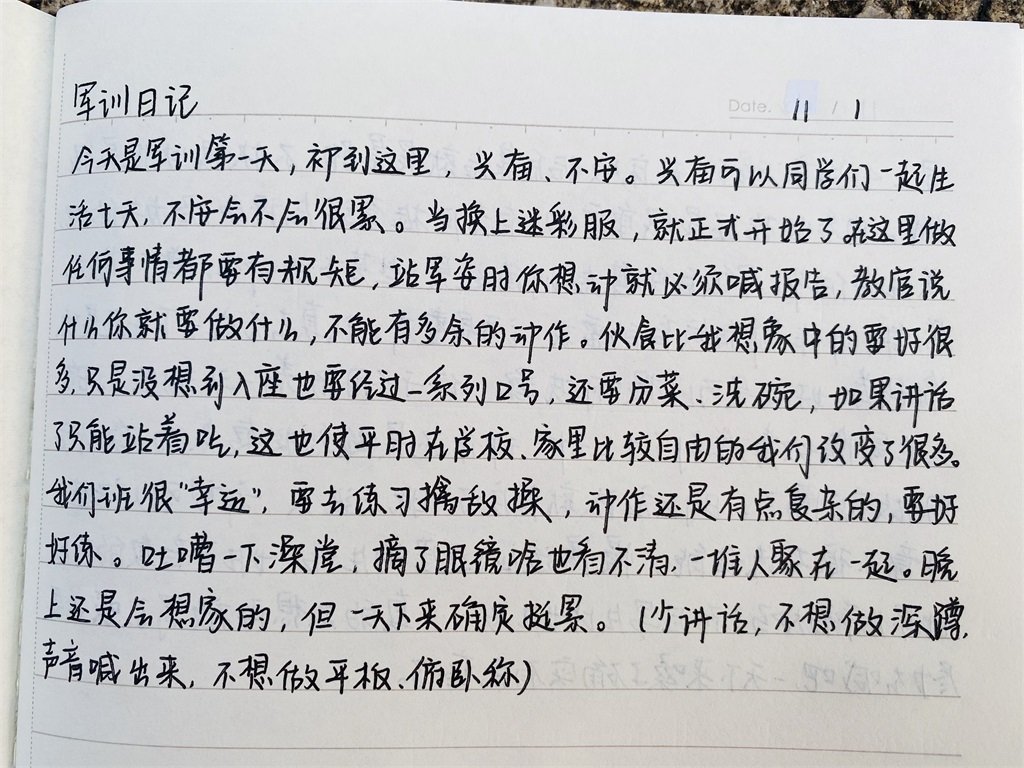 军训日记
Date. 11 / 1
今天是军训第一天，初到这里，兴奋、不安。兴奋可以同学们一起生
活七天，不安会不会很累。当换上迷彩服，就正式开始了。在这里做
任何事情都要有规矩，站军姿时你想动就必须喊报告，教官说
什么你就要做什么，不能有多余的动作。伙食比我想象中的要好很
多，只是没想到入座也要经过一系列口号，还要分菜、洗碗，如果讲话
了只能站着吃，这也使平时在学校、家里比较自由的我们改变了很多。
我们班很“幸运”，要去练习擒敌操，动作还是有点复杂的，要好
好练。吐嘈一下澡堂，摘了眼镜啥也看不清，一堆人聚在一起。晚
上还是会想家的，但一天下来确实挺累。（少讲话，不想做深蹲，
声音喊出来，不想做平板、俯卧称）